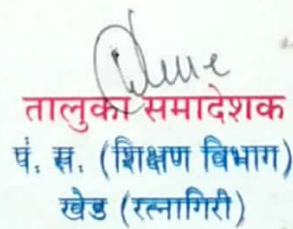 तालुका समादेशक
पं. स. (शिक्षण विभाग)
खेड (रत्नागिरी)